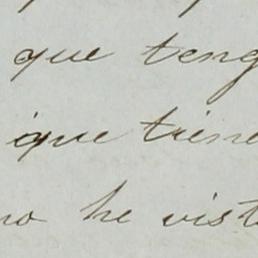 que teng
que tiene
no he visto